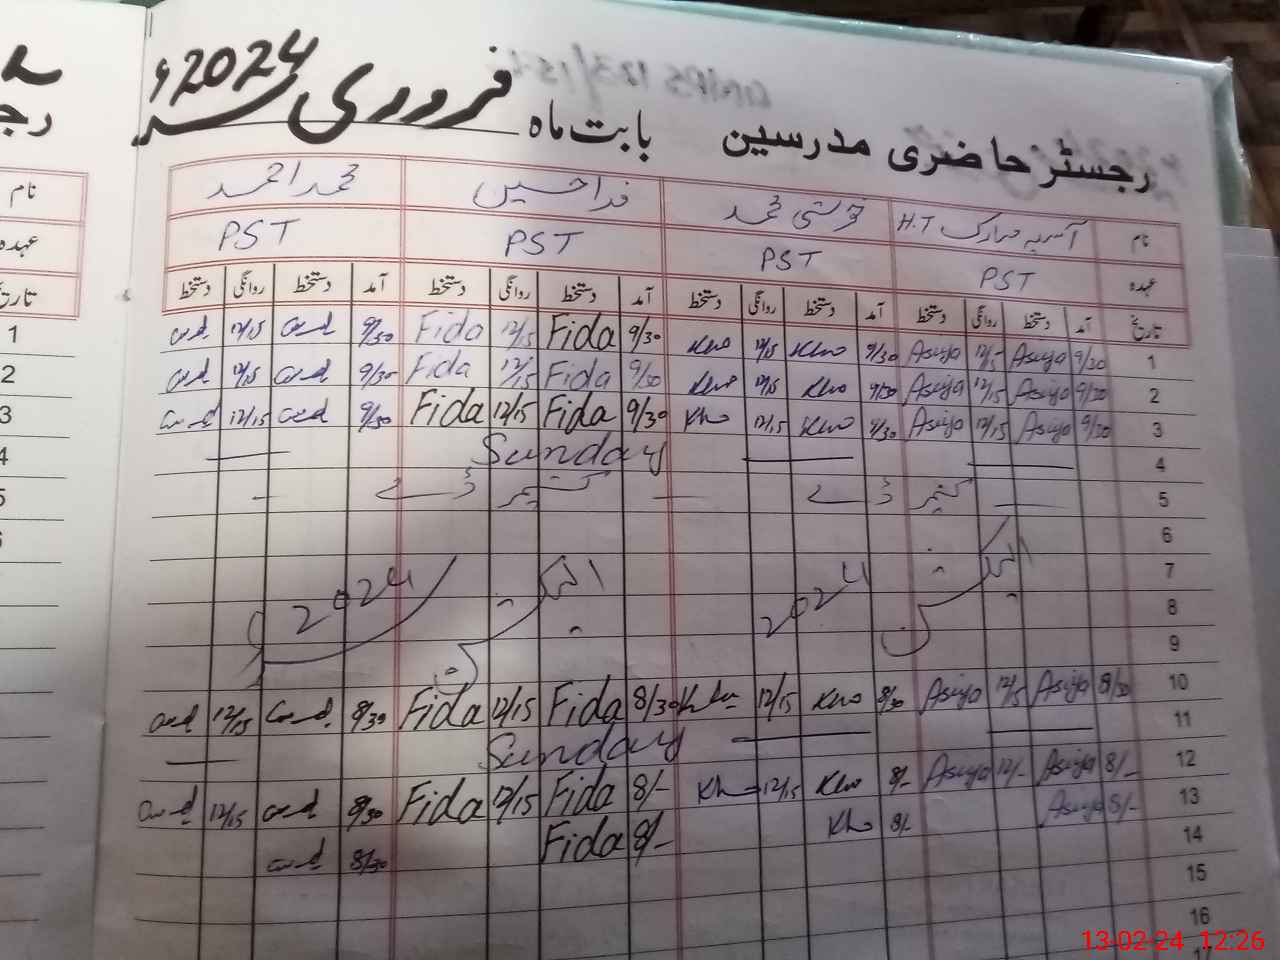 رجسٹر حاضری مدرسین بابت ماہ فروری سنہ 2024ء
نام آسیہ مبارک H.T محمد فدا حسین محمد احمد
عہدہ PST PST PST PST
تاریخ آمد دستخط روانگی دستخط آمد دستخط روانگی دستخط آمد دستخط روانگی دستخط آمد دستخط روانگی دستخط
1 9/30 Asiya 12/15 Asiya 9/30 Kho 12/15 Kho 9/30 Fida 12/15 Fida 9/30 12/15
2 9/30 Asiya 12/15 Asiya 9/30 Kho 12/15 Kho 9/30 Fida 12/15 Fida 9/30 12/15
3 9/30 Asiya 12/15 Asiya 9/30 Kho 12/15 Kho 9/30 Fida 12/15 Fida 9/30 12/15
4 Sunday
5 کشمیر ڈے کشمیر ڈے
6
7 الیکشن 2024 الیکشن 2024ء
8
9
10 8/30 Asiya 12/15 Asiya 8/30 Kho 12/15 8/30 Fida 12/15 Fida 8/30 12/15
11 Sunday
12 8/- Asiya 12/- Asiya 8/- Kho 12/15 Kh 8/- Fida 12/15 Fida 8/30 12/15
13 8/- Asiya 8/- Kho 8/- Fida 8/30
14
15
16
17
نام
عہدہ
1
2
3
4
5
13-02-24 12:26